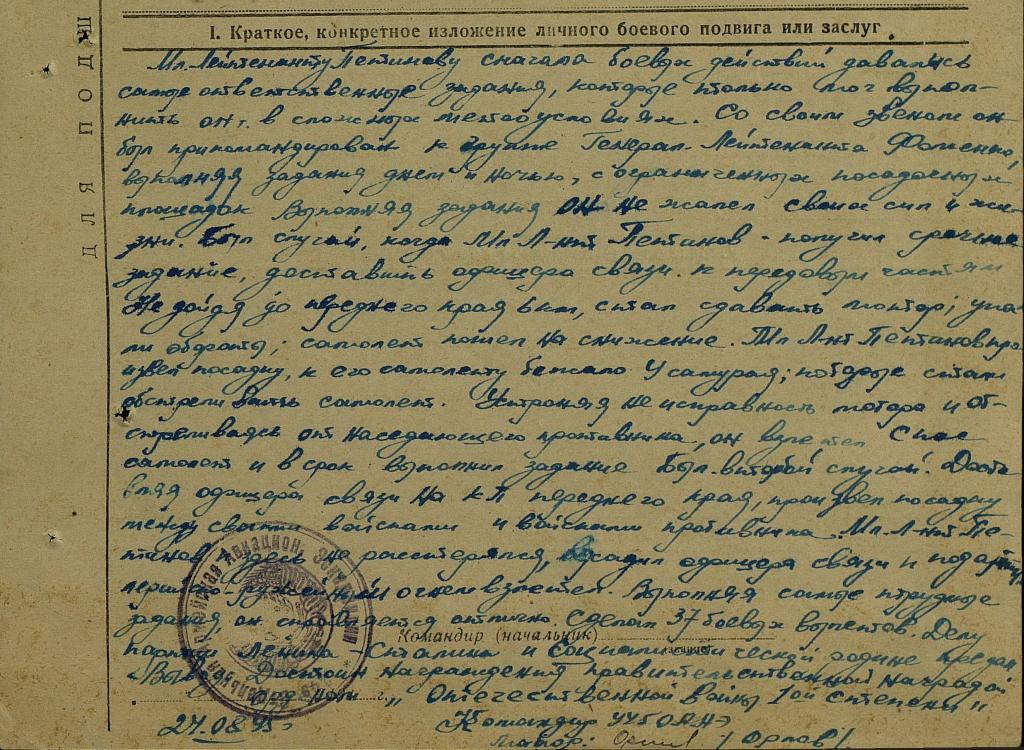 ДЛЯ ПОД
I. Краткое, конкретное изложение личного боевого подвига или заслуг
Мл. Лейтенанту Петинову сначала боевых действий давались
самые ответственные задания, которые только мог выпол-
нить он т. в сложных метеоусловиях. Со своим звеном он
был прикомандирован к группе Генерал-Лейтенанта Фоменко,
выполняя задания днем и ночью, с ограниченных посадочных
площадок Выполняя задания он не жалел своих сил и жи-
зни. Был случай, когда Мл Л-нт Петинов - получил срочное
задание, доставить офицера связи к передовым частям
Не дойдя до переднего края 6 км, стал сдавать мотор; упа-
ли обороты; самолет пошел на снижение. Мл Л-нт Петинов про
извел посадку, к его самолету бежало 4 самурая; которые стали
обстреливать самолет. Устраняя неисправность мотора и от-
стреливаясь от наседающего противника, он взлетел Спас
самолет и в срок выполнил задание Был второй случай. Доста
вляя офицера связи на КП переднего края, произвел посадку
между своими войсками и войсками противника. Мл Л-нт Пе-
тинов здесь не расстерялся, офицера связи и под
ружейным огнем взлетел. Выполняя самые трудные
задания, он справляется отлично. Сделал 37 боевых вылетов. Делу
Командир (начальник)
партии Ленина-Сталина и Социалистической родине предан
Вывод: Достоин награждения правительственной наградой
орденом „Отечественной войны 1ой степени"
27.08.45г Командир
Майор: /Орлов/